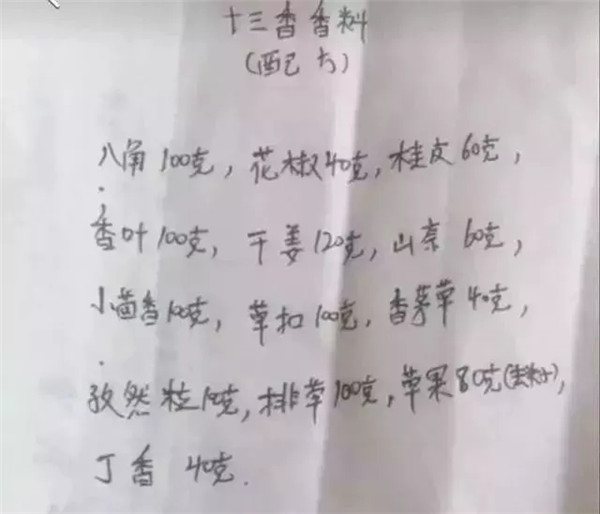 十三香香料
(配方)
八角100克，花椒40克，桂皮60克，
香叶100克，干姜120克，山奈60克，
小茴香100克，草扣100克，香茅草40克，
孜然粒10克，排草100克，草果80克(去籽)，
丁香 40克.